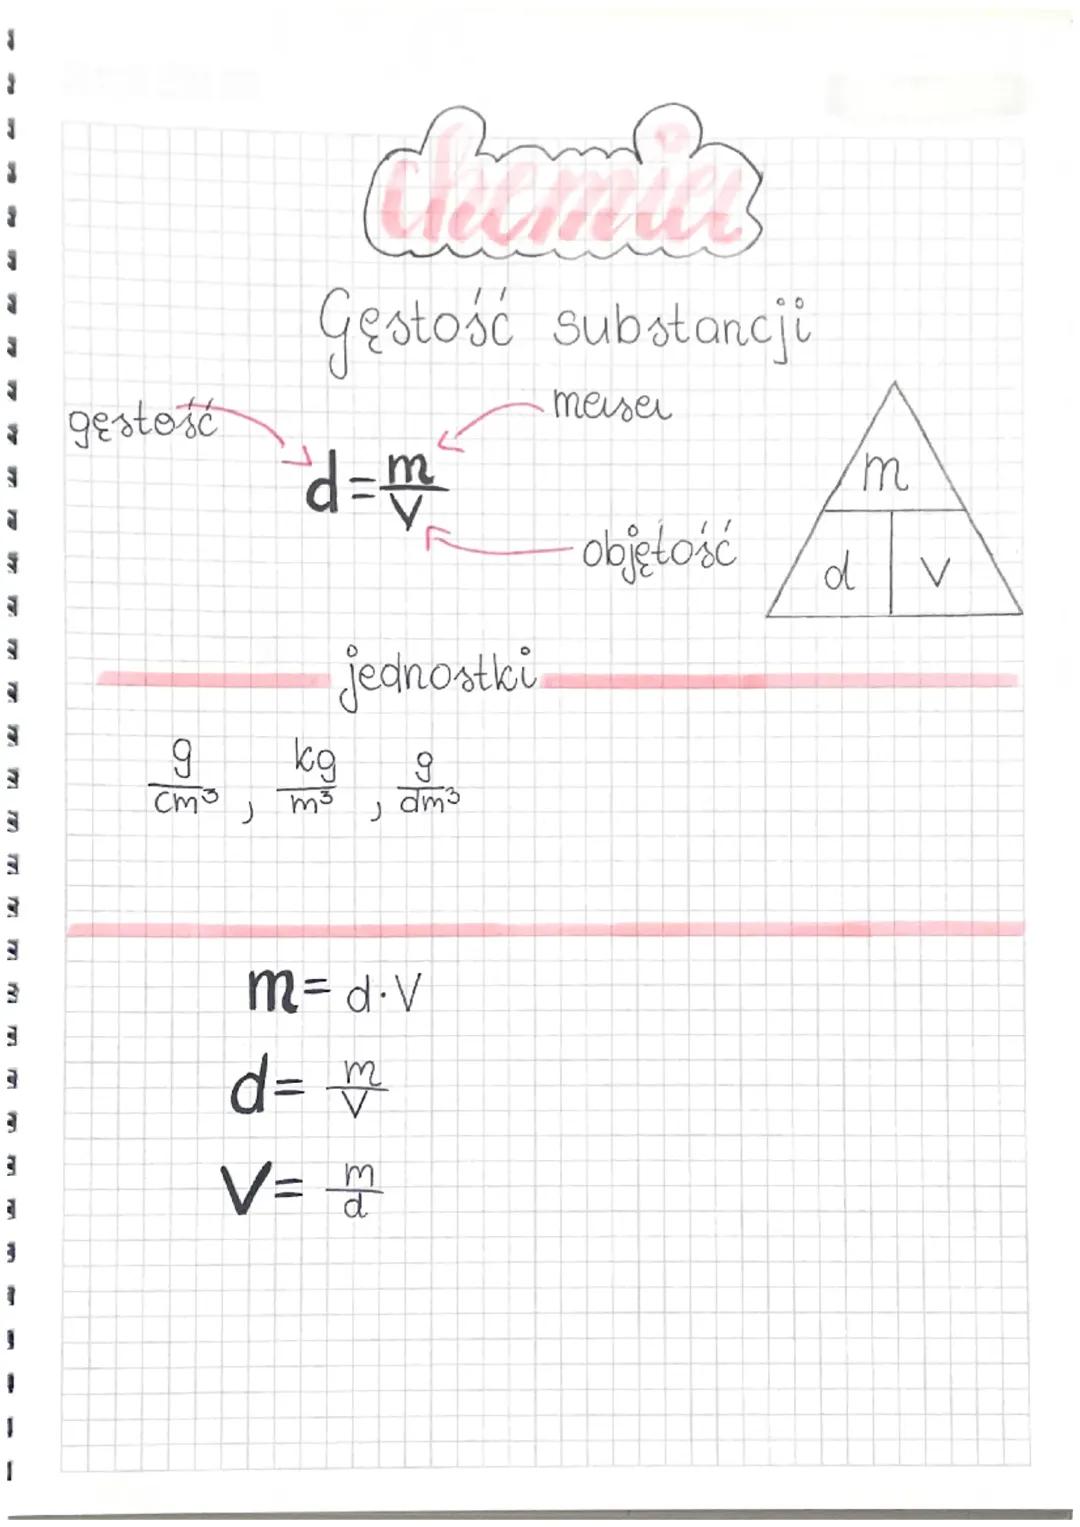 chemia
Gęstość substancji
gęstość
masa
d = m/V
objętość
m
d V
jednostki
g/cm³, kg/m³, g/dm³
m = d · V
d = m/V
V = m/d